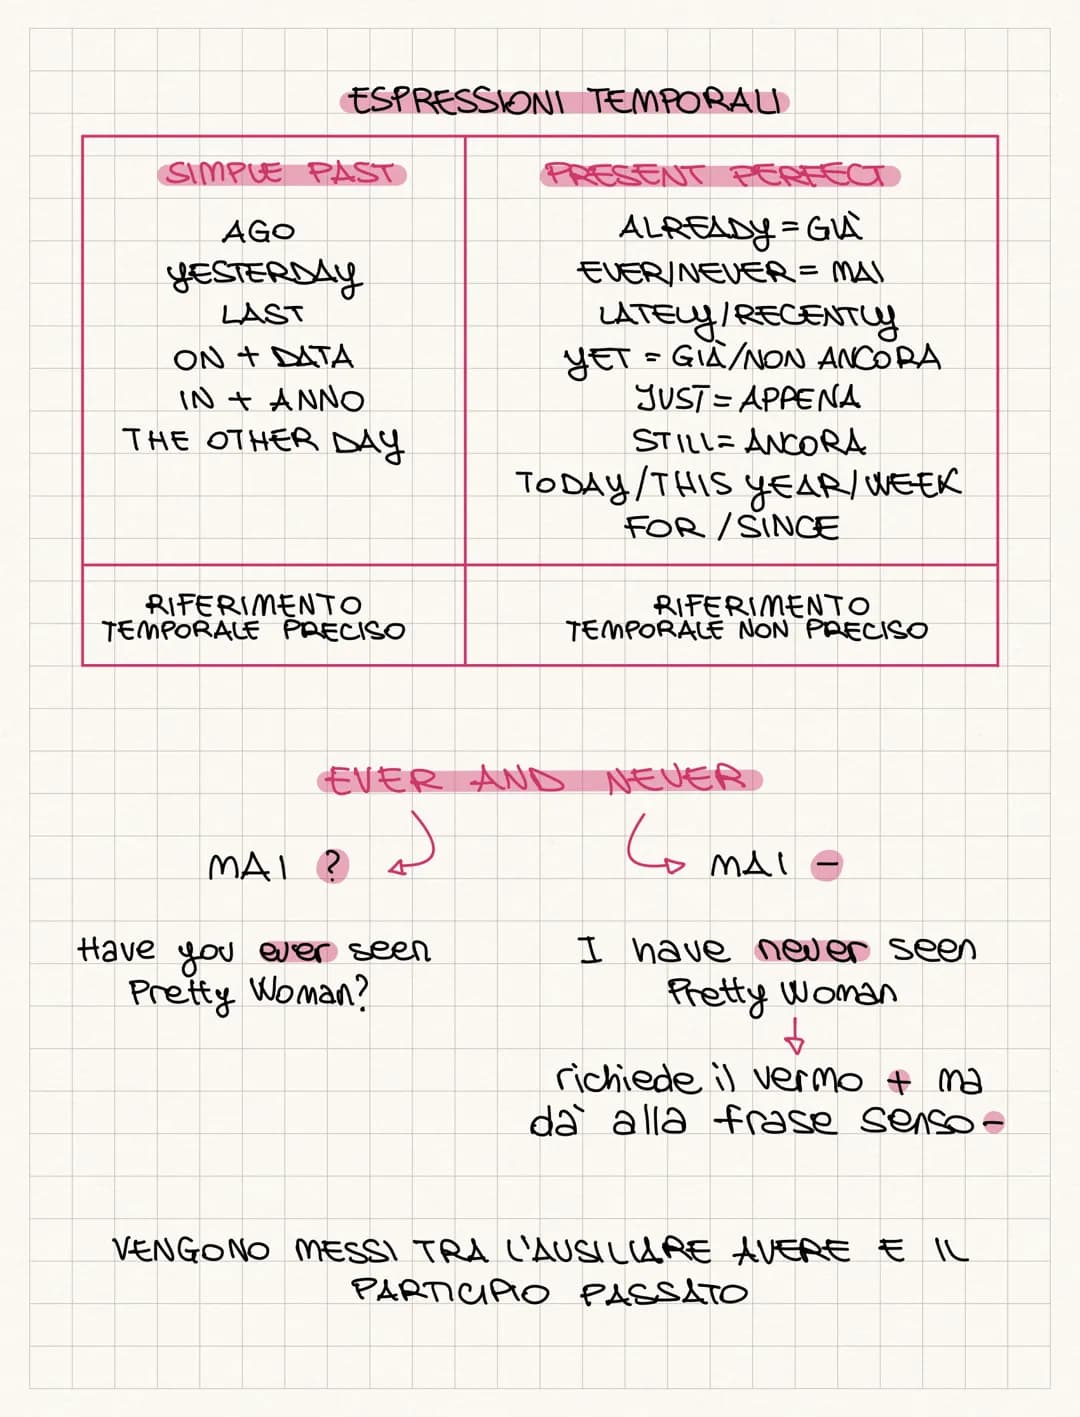 ESPRESSIONI TEMPORALI
SIMPLE PAST
AGO
YESTERDAY
LAST
ON + DATA
IN + ANNO
THE OTHER DAY
RIFERIMENTO
TEMPORALE PRECISO
PRESENT PERFECT
ALREADY = GIÀ
EVER/NEVER = MAI
LATELY/RECENTLY
YET = GIÀ/NON ANCORA
JUST = APPENA
STILL = ANCORA
TODAY/THIS YEAR/WEEK
FOR / SINCE
RIFERIMENTO
TEMPORALE NON PRECISO
EVER AND NEVER
MAI ?
Have you ever seen
Pretty Woman?
MAI -
I have never seen
Pretty Woman
richiede il vermo + ma
dà alla frase senso -
VENGONO MESSI TRA L'AUSILIARE AVERE E IL
PARTICIPIO PASSATO